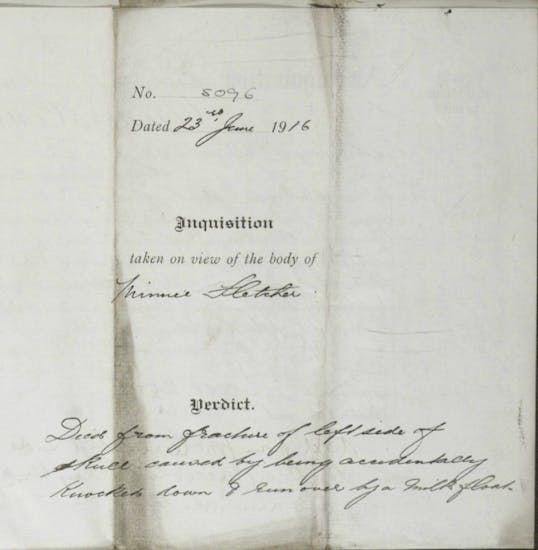 No. 5096
Dated 23rd June 1916
Inquisition
taken on view of the body of
Minnie Fletcher.
Verdict.
Died from fracture of left side of
skull caused by being accidentally
knocked down & run over by a milk float.